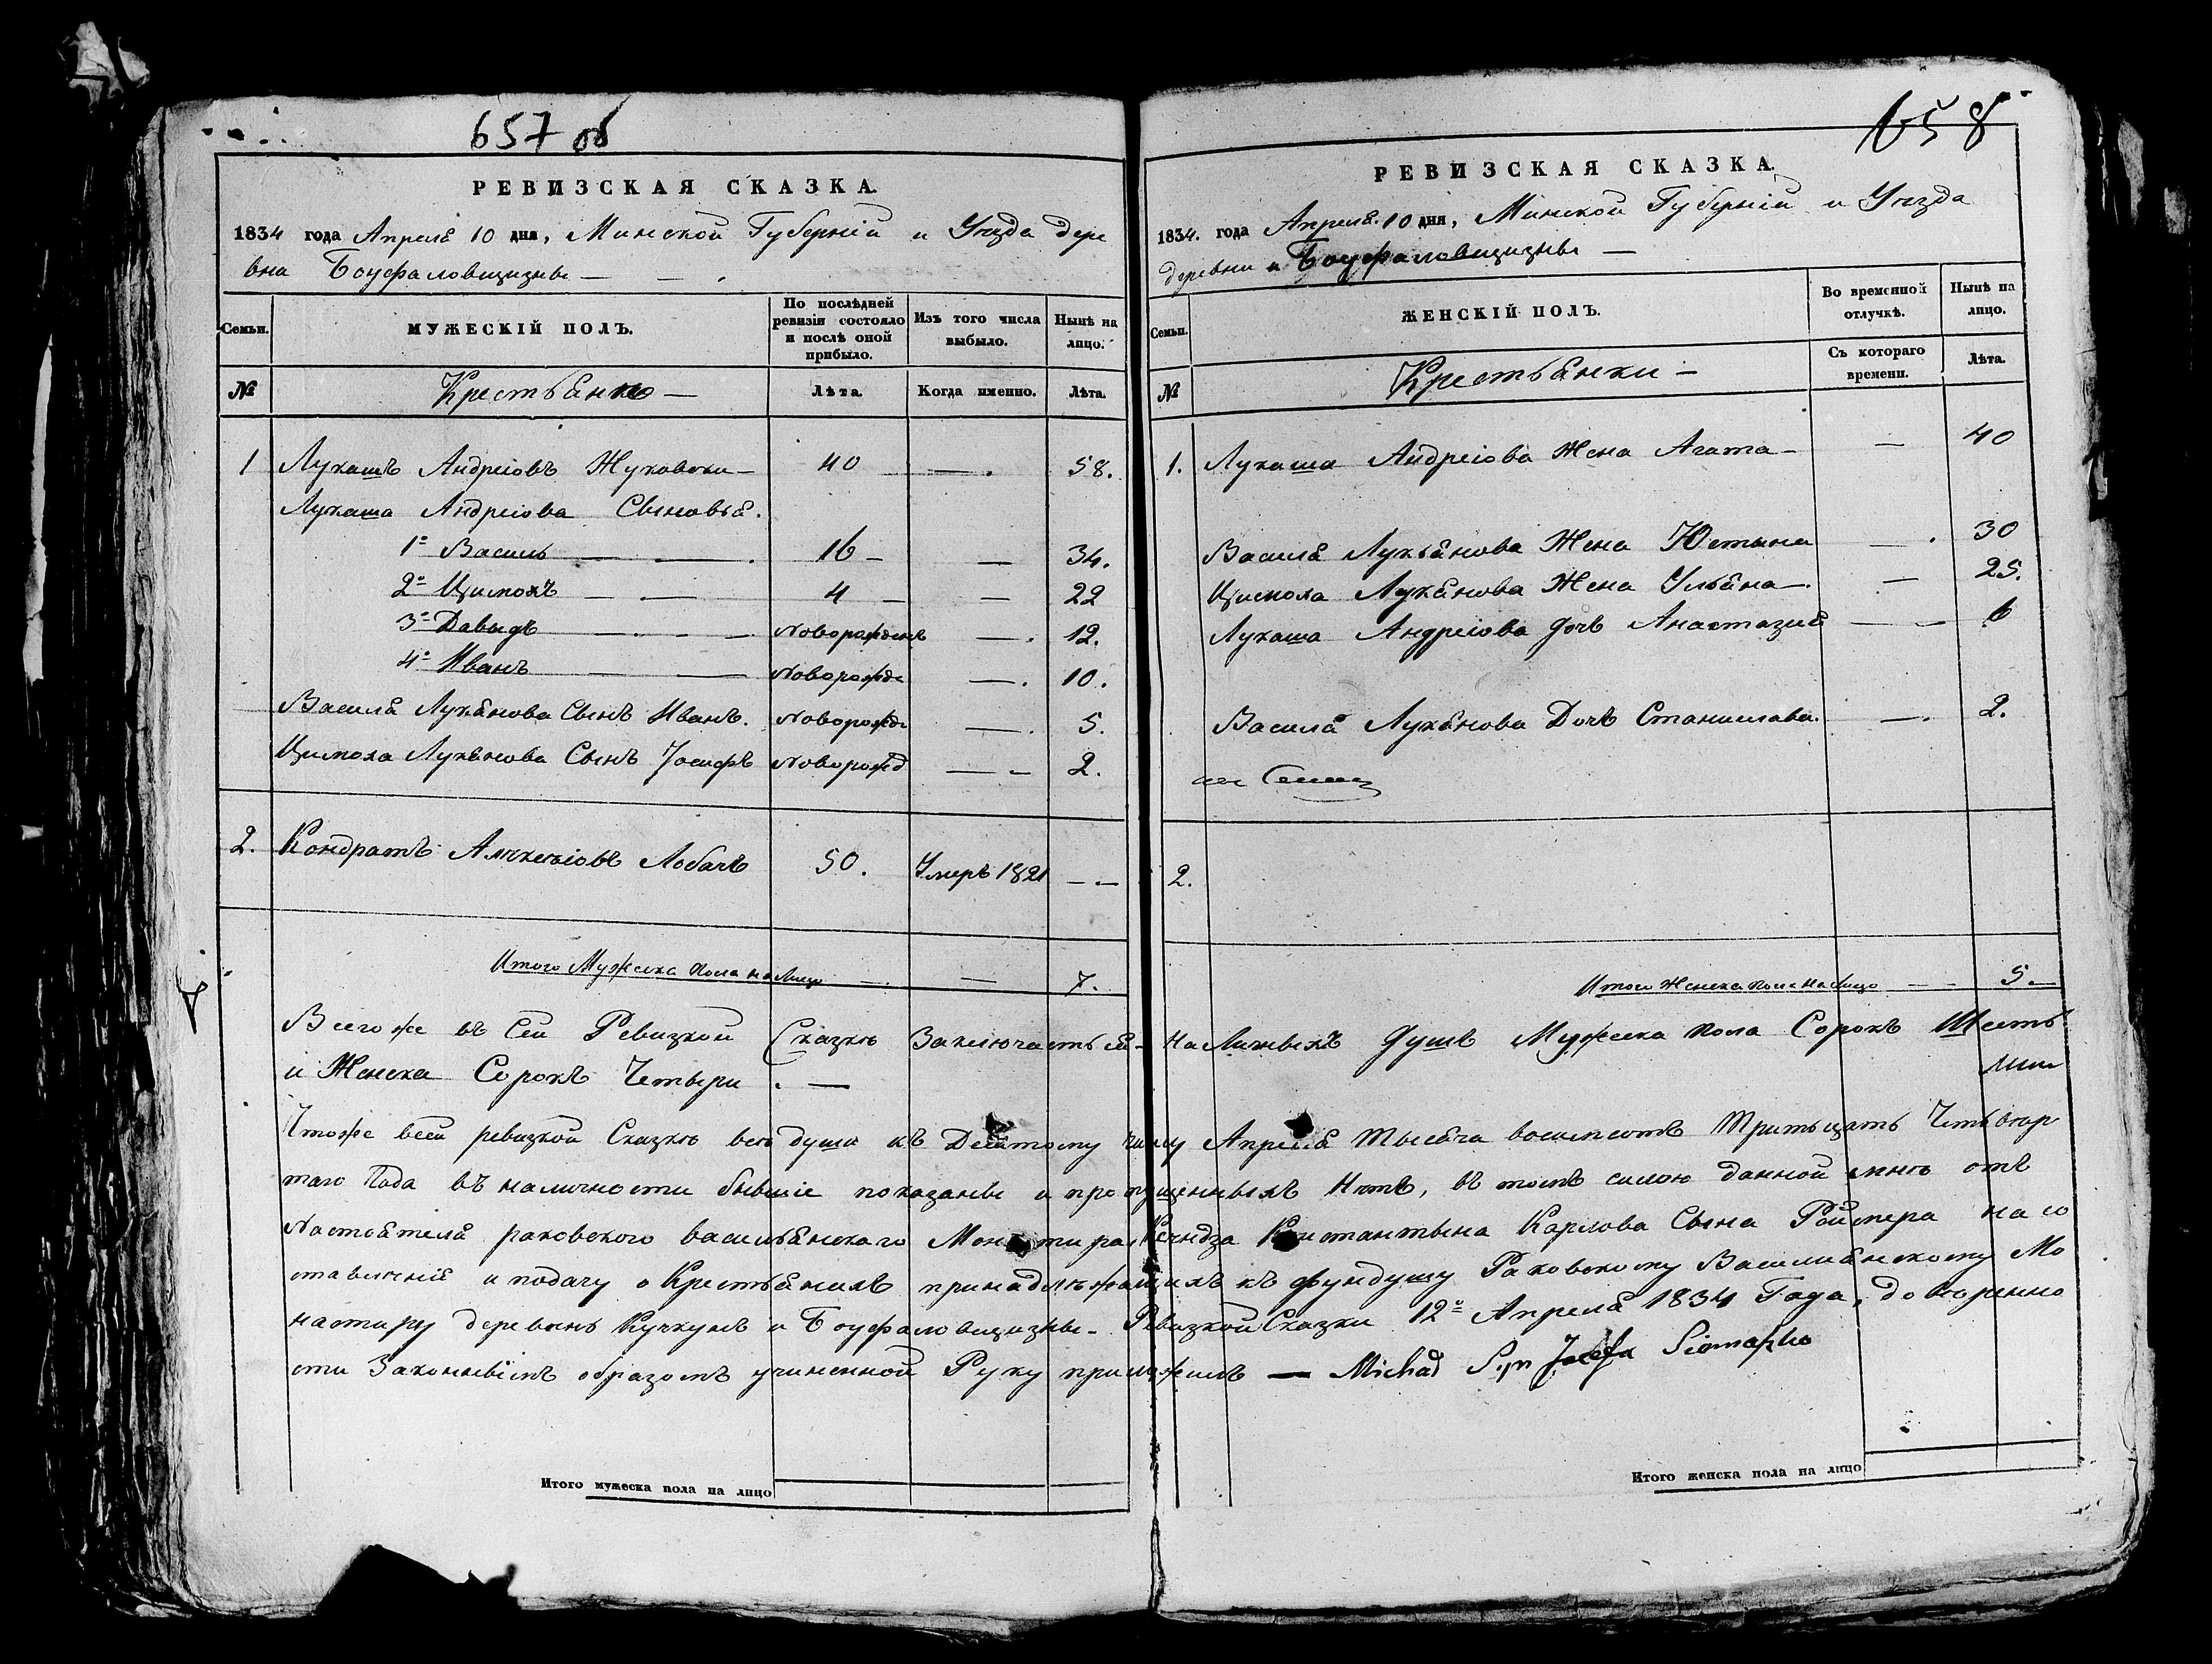 657 об
РЕВИЗСКАЯ СКАЗКА.
1834 года Апреля 10 дня, Минской Губерніи и Уезда дере
вна Боуфаловщизны —
Семьи.
МУЖЕСКІЙ ПОЛЪ.
По послѣдней ревизіи состояло и послѣ оной прибыло.
Изъ того числа выбыло.
Нынѣ на лицо.
№
Крестьянѣ —
Лѣта.
Когда именно.
Лѣта.
1 Лукашъ Андреіовъ Жуковски — 40 —. 58.
Лукаша Андреіова Сыновья.
1º Василь — 16 — — 34.
2º Цимохъ — 4 — — 22
3º Давыдъ — Новорожденъ —. 12.
4º Иванъ — Новорожде —. 10.
Василя Лукянова Сынъ Иванъ. Новорожде —. 5.
Цимоха Лукянова Сынъ Іосифъ Новорожд — 2.
2. Кондратъ Алексіовъ Лобачъ 50. Умеръ 1821 —
Итого Мужеска пола на Лицо — — 7.
658
РЕВИЗСКАЯ СКАЗКА.
1834. года Апреля. 10 дня, Минской Губерніи и Уезда
деревни Боуфаловщизны —
Семьи.
ЖЕНСКІЙ ПОЛЪ.
Во временной отлучкѣ.
Нынѣ на лицо.
№
Крестьянки —
Съ котораго времени.
Лѣта.
1. Лукаша Андреіова Жена Агата — — 40
Василя Лукьянова Жена Юстына —. 30
Цимоха Лукянова Жена Ульяна —. — 25.
Лукаша Андреіова Дочъ Анастазия — 6
Василя Лукянова Дочъ Станислава. —. 2.
2.
Итого Женска пола на Лицо — 5 —
Всего же въ Сей Ревизкой Сказкѣ Заключаетьсѧ — На Личныхъ Душъ Мужеска пола Сорокъ Шесть
и Женска Сорокъ Четыри. —
Чтоже всей ревизкой Сказкѣ всѣ души къ Десятому числу Апреля Тысяча восимсотъ Тритьцать Четьвюр
таго Года въ наличности бывшіе показаны и пропущенныхъ Нѣтъ, въ томъ силою данной мнѣ отъ
Настоятеля раковского васильянскаго Монастира, Ксендза Константына Карлова Сына Роймера на со
ставленія и подачу о Крестьянихъ принадлѣжащихъ къ фундушу Раковскому Василиянскому Мо
настиру деревень Кучкунъ и Боуфаловщизны — Ревизкой Сказки 12º Апреля 1834 Года, доверенно
сти Законнымъ образомъ учиненной Руку приложилъ — Michał Syn Jozefa Siemaszko
Итого мужеска пола на лицо
Итого женска пола на лицо